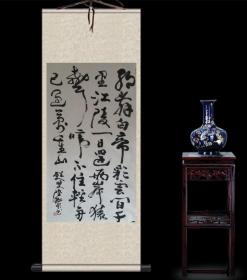 朝辞白帝彩云间千
里江陵一日还两岸猿
声啼不住轻舟
已过万重山